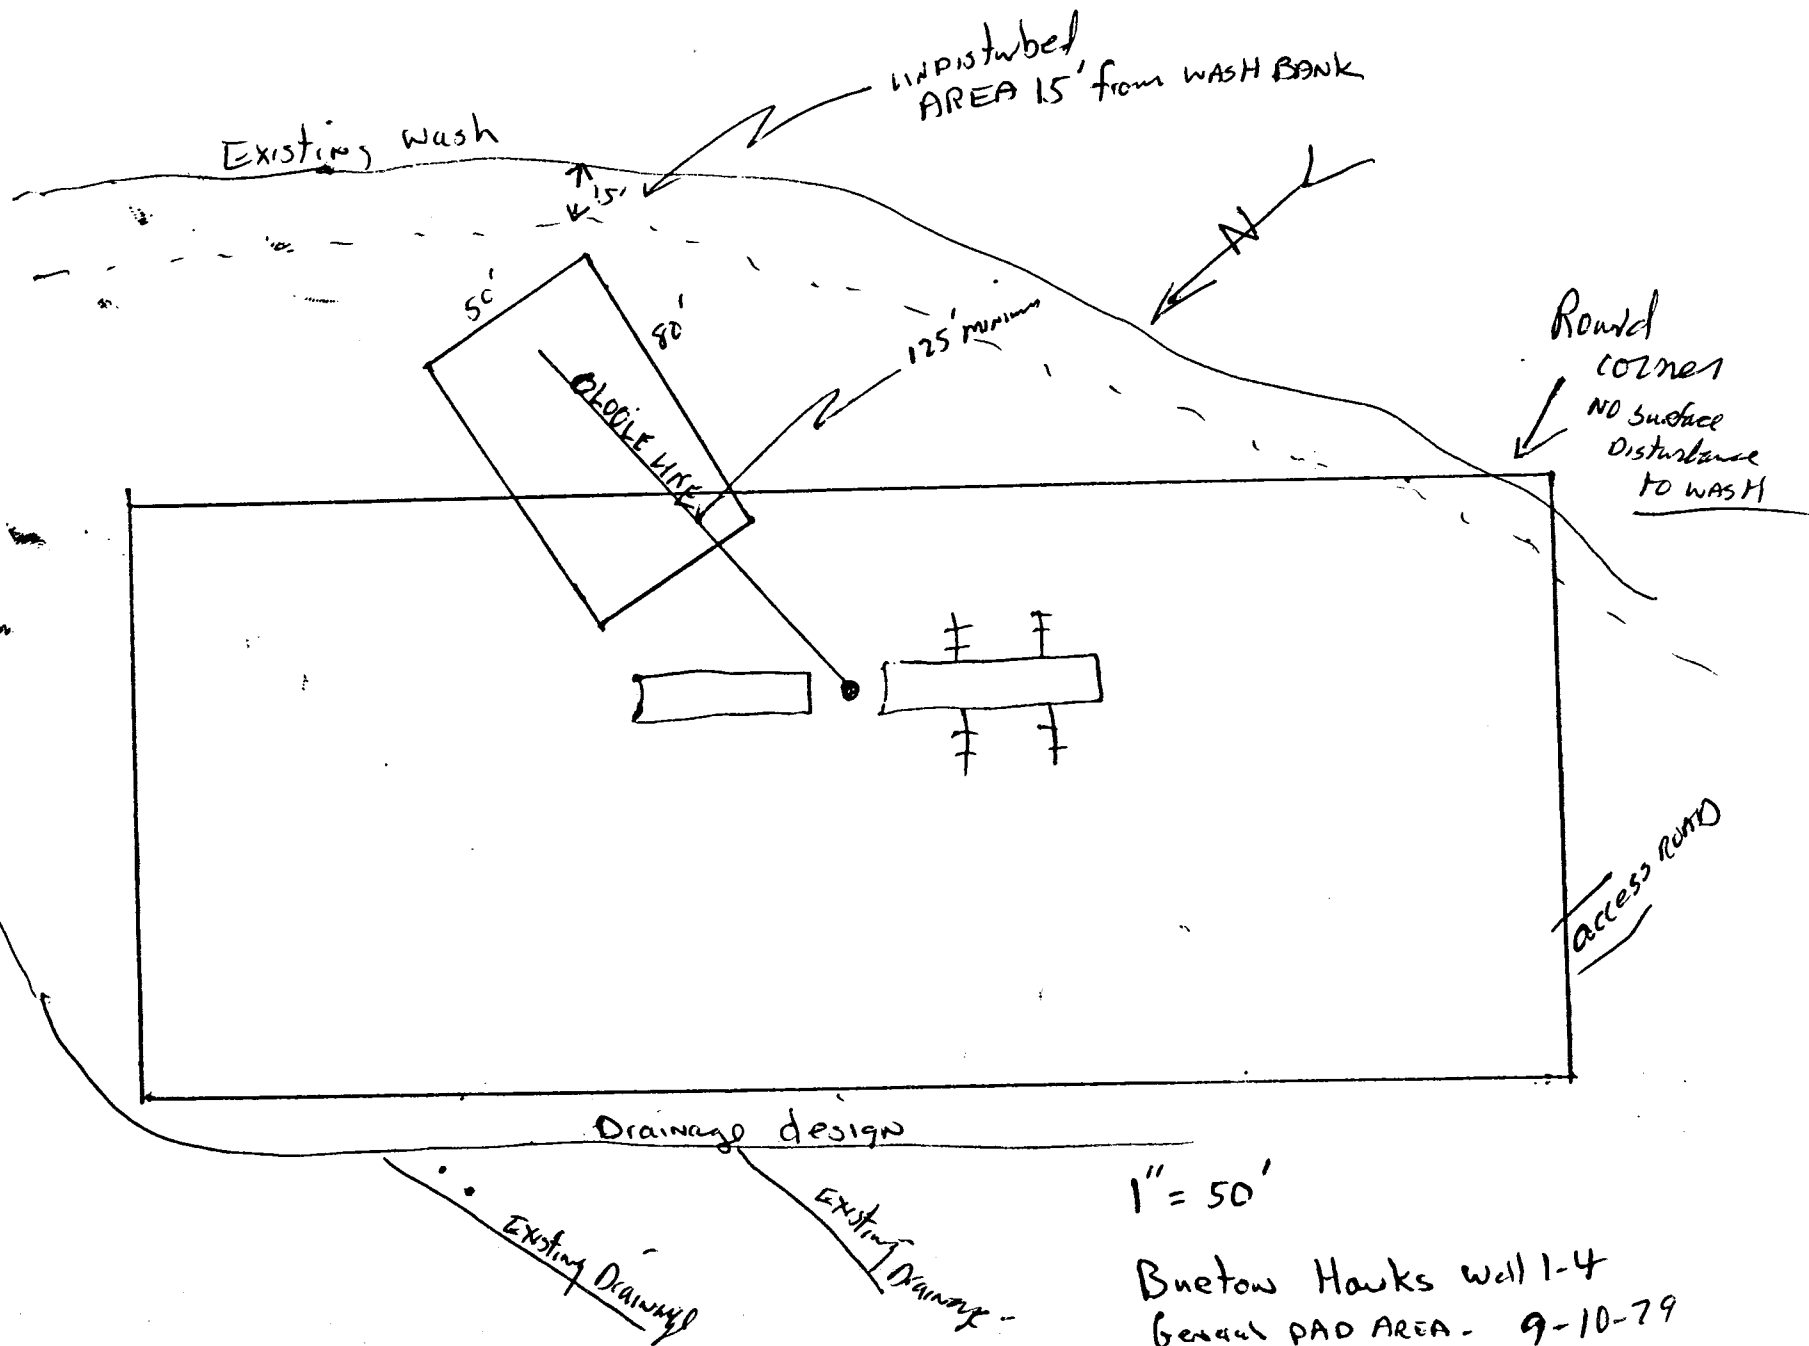 UNDisturbed
AREA 15' from WASH BANK
Existing wash
15'
N
50'
80'
125' minimum
Round
corner
NO Surface
Disturbance
to WASH
BLOOIE LINE
access ROAD
Drainage design
Existing Drainage
Existing Drainage -
1" = 50'
Hawks well 1-4
General PAD AREA - 9-10-79